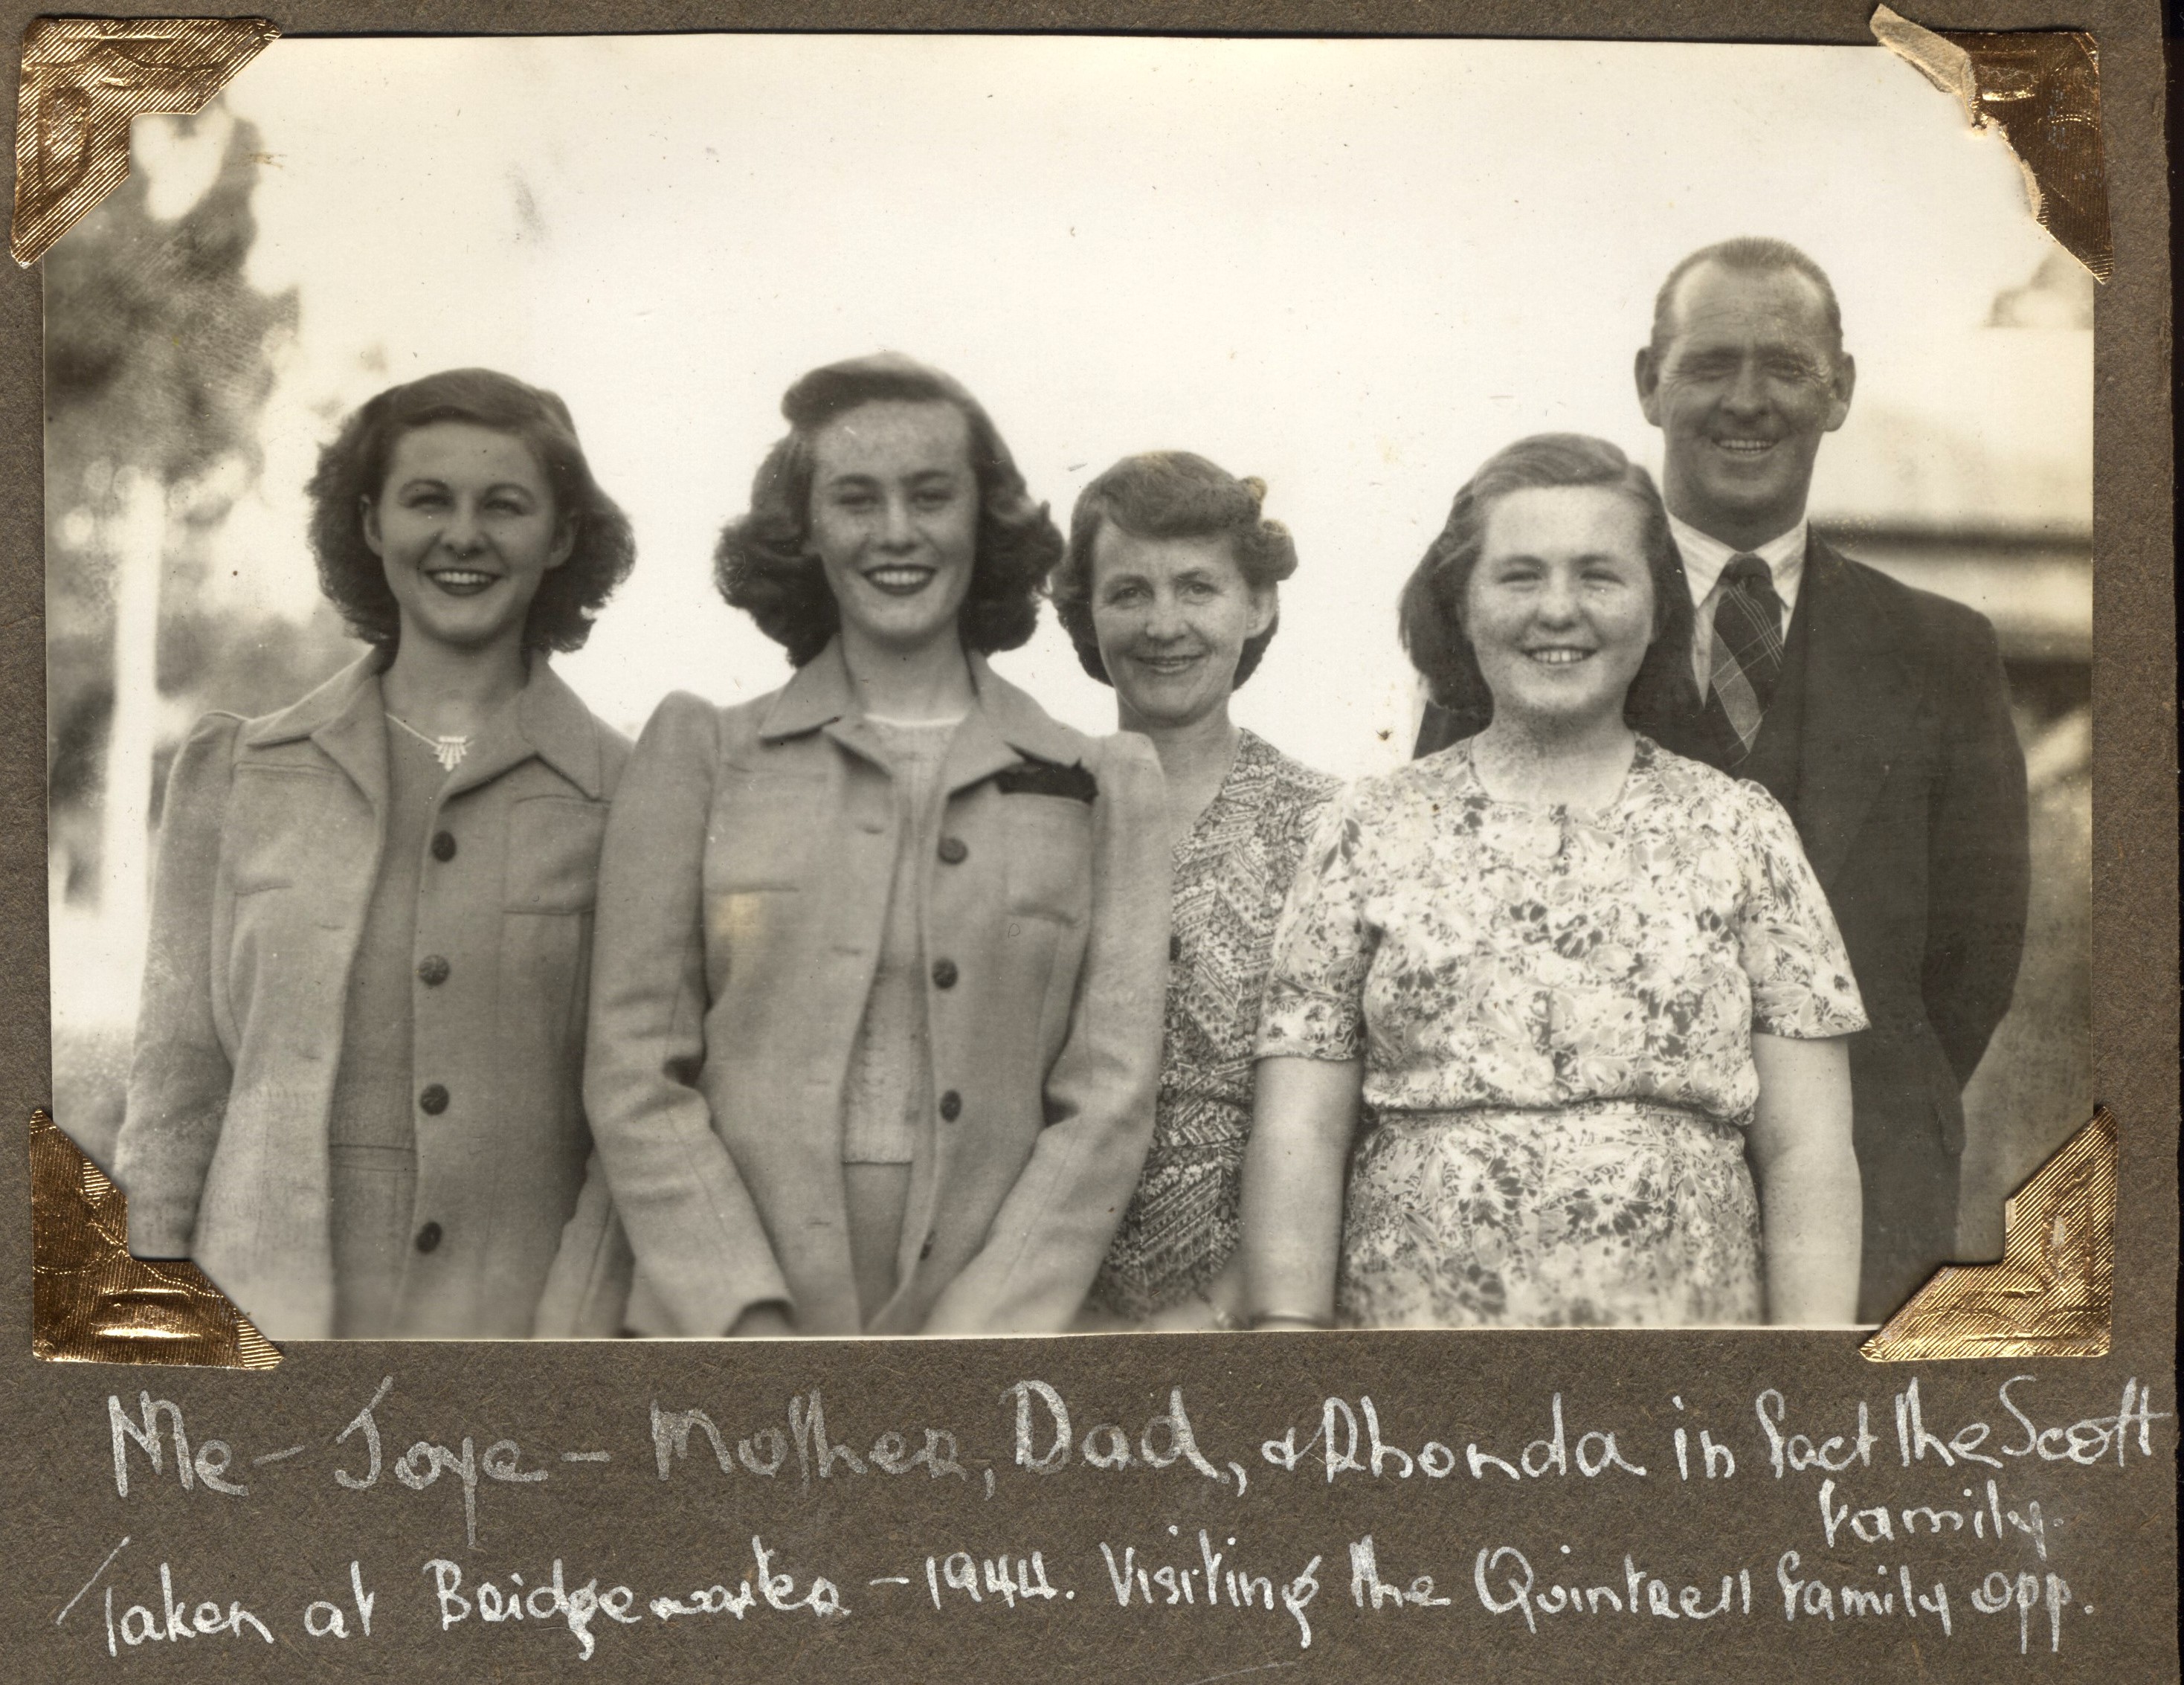 Me - Joye - Mother, Dad, & Rhonda in fact the Scott
family.
Taken at Bridgewater - 1944. Visiting the Quintrell family opp.